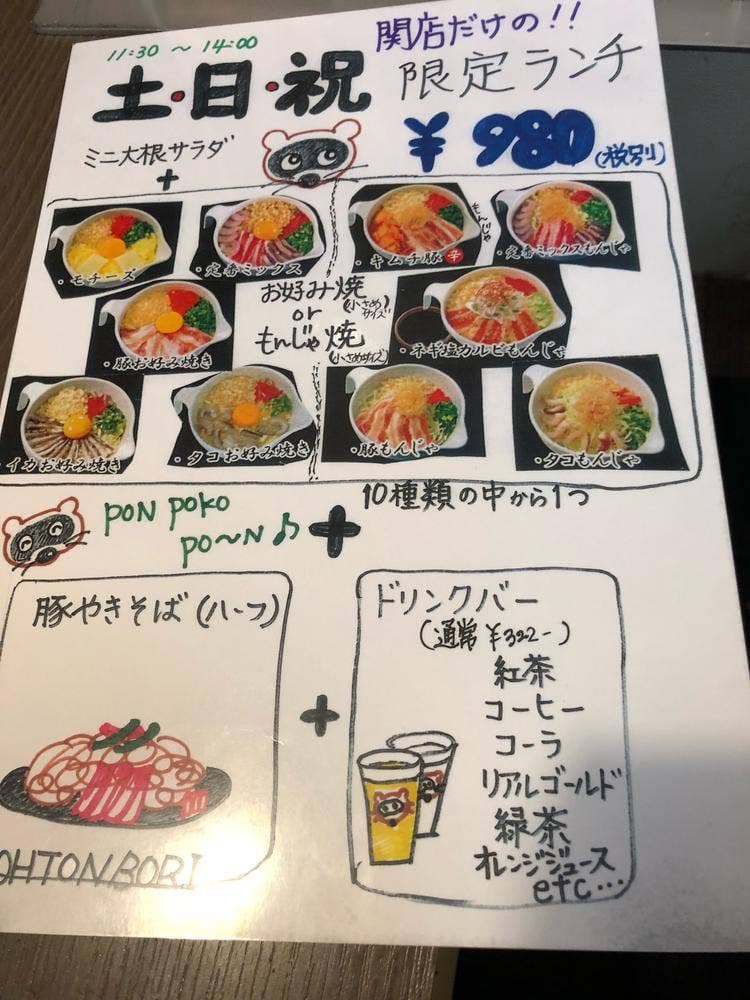 関店だけの!!
11:30 ～ 14:00
土・日・祝
限定ランチ
¥980(税別)
ミニ大根サラダ
+
・モチーズ
・定番ミックス
・キムチ豚 辛
もんじゃ
・定番ミックスもんじゃ
お好み焼(小さめサイズ)
or
もんじゃ焼(小さめサイズ)
・豚お好み焼き
・ネギ塩カルビもんじゃ
・イカお好み焼き
・タコお好み焼き
・豚もんじゃ
・タコもんじゃ
10種類の中から1つ
PON POKO
PO～N♪
+
豚やきそば(ハーフ)
+
ドリンクバー
(通常¥322-)
紅茶
コーヒー
コーラ
リアルゴールド
緑茶
オレンジジュース
etc…
OHTONBORI